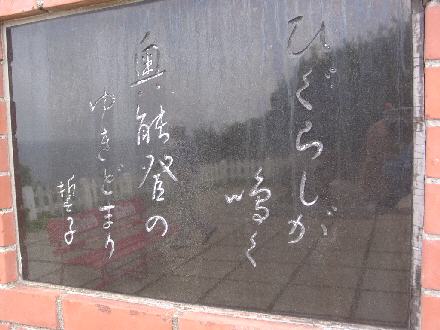 ひぐらしが
鳴く
奥能登の
ゆきどまり
誓子